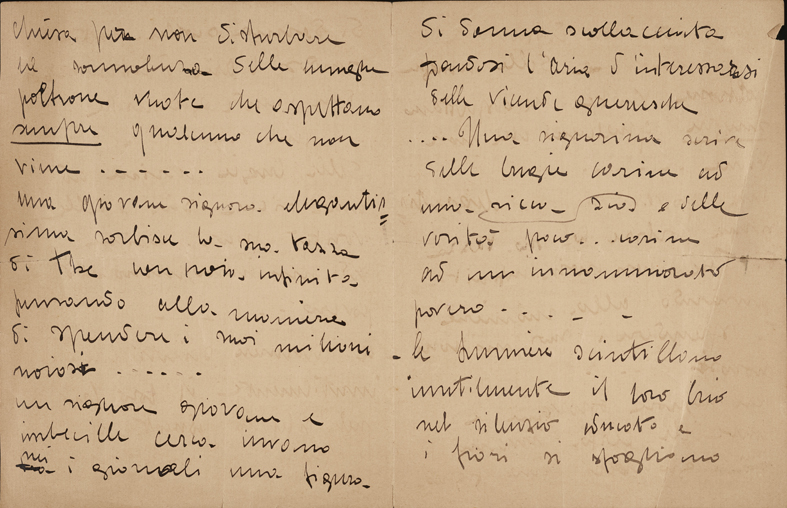 chiusa per non disturbare
la sonnolenza delle lunghe
poltrone vuote che aspettano
sempre qualcuno che non
viene - - - - - -
una giovane signora elegantis=
sima sorbisce la sua tazza
di the con noia infinita
pensando alla maniera
di spendere i suoi milioni
noiosi - - - - - -
un signore giovane e
imbecille cerca invano
nei giornali una figura
di donna scollacciata
dandosi l'aria d'interessarsi
delle vicende guerresche
.... Una signorina scrive
delle bugie carine ad
una ricca zia e delle
verità poco... carine
ad un innammorato
povero - - - - -
le lumiere scintillano
inutilmente il loro brio
nel silenzio educato e
i fiori si sfogliano